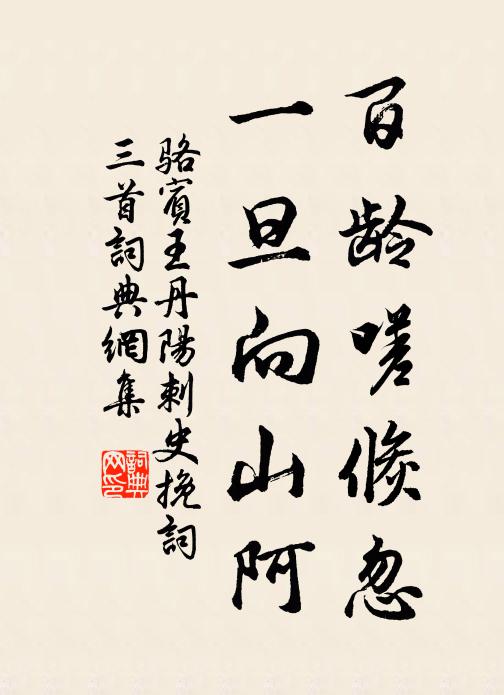 百龄嗟倏忽
一旦向山阿
骆賓王丹陽刺史挽詞
三首詞典網集
詞典网印